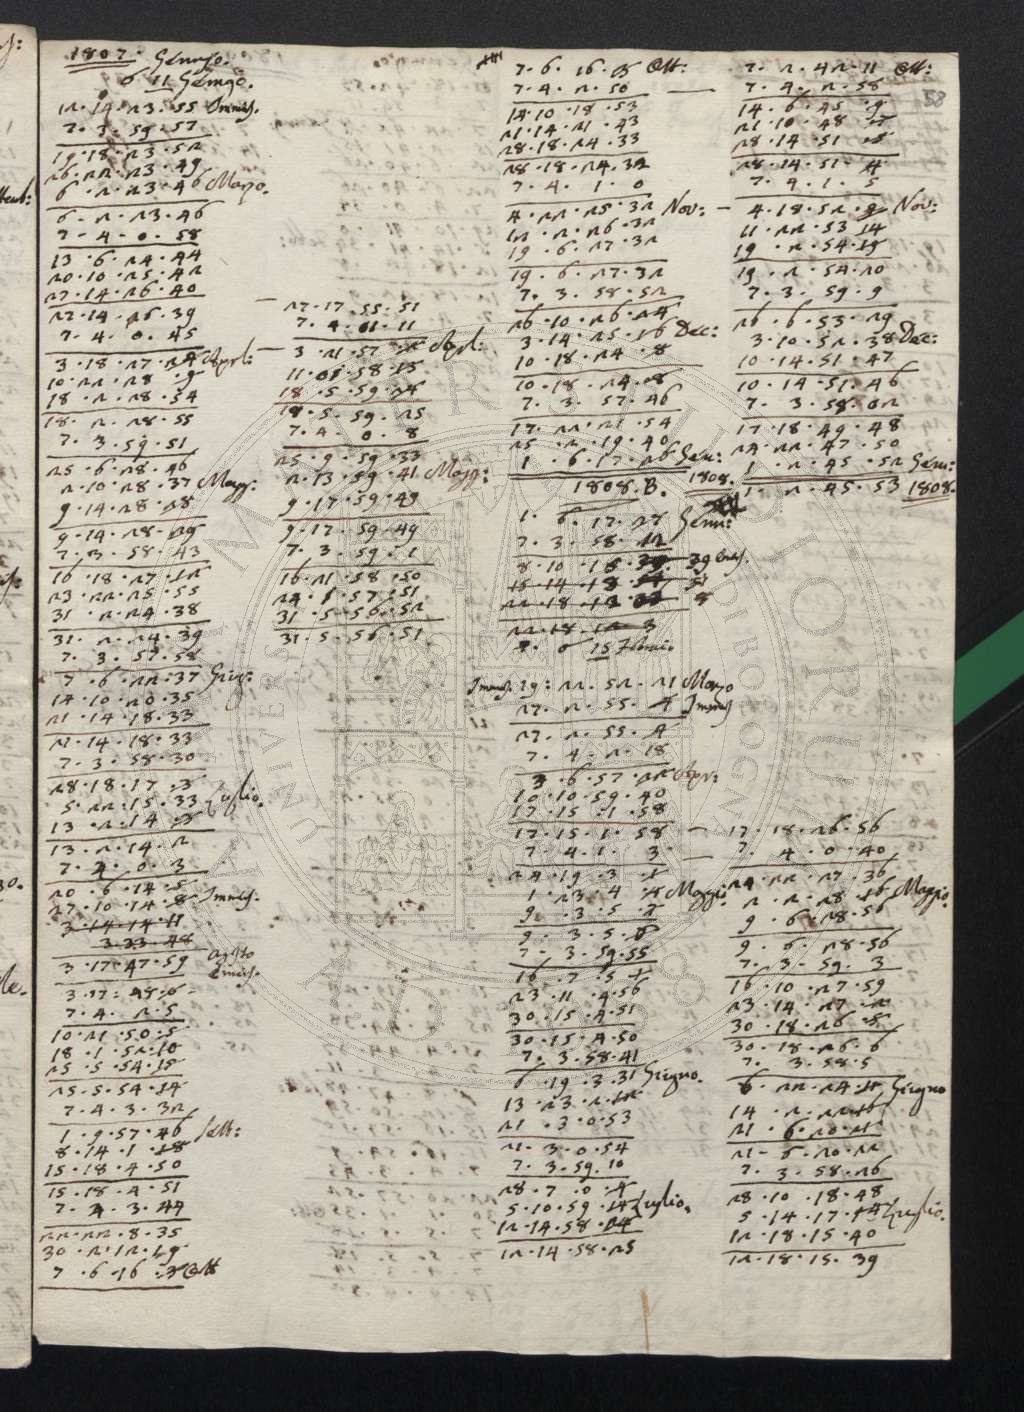 1807. Gennajo.
6 11 Genajo.
12.14.23.55 Immers.
7.3.59.57
19.18.23.52
26.22.23.49
6.2.23.46 Marzo.
6.2.23.46
7.4.0.58
13.6.24.44
20.10.25.42
27.14.26.40
27.14.26.39
7.4.0.45
3.18.27.24 Aprl:
10.22.28.9
18.2.28.54
18.2.28.55
7.3.59.51
25.6.28.46
2.10.28.37 Magg:
9.14.28.28
9.14.28.29
7.3.58.43
16.18.27.12
23.22.25.55
31.2.24.38
31.2.24.39
7.3.57.58
7.6.22.37 Giug:
14.10.20.35
21.14.18.33
21.14.18.33
7.3.58.30
28.18.17.3
5.22.15.33 Luglio.
13.2.14.3
13.2.14.2
7.4.0.3
20.6.14.5
27.10.14.8 Immers.
3.14.14.11
3.33.48
3.17.47.59 Agosto
Emers.
3.17.48.6
7.4.2.5
10.21.50.5
18.1.52.10
25.5.54.15
25.5.54.14
7.4.3.32
1.9.57.46 Sett:
8.14.1.18
15.18.4.50
15.18.4.51
7.4.3.44
22.22.8.35
30.2.12.19
7.6.16.3 Ott
27.17.55.51
7.4.01.11
3.21.57.2 Aprl:
11.01.58.13
18.5.59.24
18.5.59.25
7.4.0.8
25.9.59.33
2.13.59.41 Magg:
9.17.59.49
9.17.59.49
7.3.59.1
16.21.58.50
24.1.57.51
31.5.56.52
31.5.56.51
7.6.16.5 Ott:
7.4.2.50
14.10.18.53
21.14.21.43
28.18.24.33
28.18.24.32
7.4.1.0
4.22.25.32 Nov:
12.2.26.32
19.6.27.32
19.6.27.32
7.3.58.52
26.10.26.24
3.14.25.16 Dec:
10.18.24.8
10.18.24.8
7.3.57.46
17.22.21.54
25.2.19.40
1.6.17.26 Gen:
1808.B. 1808.
1.6.17.27 Genn:
7.3.58.12
8.10.15.39 Emers.
15.14.13.51
22.18.12.3 8
22.18.12.3
15 Febraio
Immers. 19:22.52.21 Marzo
27.2.55.4 Immers
27.2.55.4
7.4.2.18
3.6.57.22 Apr:
10.10.59.40
17.15.1.58
17.15.1.58
7.4.1.3
24.19.3.1
1.23.4.4 Maggio
9.3.5.7
9.3.5.6
7.3.59.55
16.7.5.1
23.11.4.56
30.15.4.51
30.15.4.50
7.3.58.41
6.19.3.31 Giugno.
13.23.2.12
21.3.0.53
21.3.0.54
7.3.59.10
28.7.0.4
5.10.59.14 Luglio.
12.14.58.24
12.14.58.25
7.2.42.11 Ott:
7.4.2.58
58
14.6.45.9
21.10.48.7
28.14.51.5
28.14.51.4
7.4.1.5
4.18.52.9 Nov:
11.22.53.14
19.2.54.19
19.2.54.20
7.3.59.9
26.6.53.29
3.10.52.38 Dec:
10.14.51.47
10.14.51.46
7.3.58.02
17.18.49.48
24.22.47.50
1.2.45.52 Gen:
1.2.45.53 1808.
17.18.26.56
7.4.0.40
24.22.27.36
2.2.28.16 Maggio.
9.6.28.56
9.6.28.56
7.3.59.3
16.10.27.59
23.14.27.2
30.18.26.5
30.18.26.6
7.3.58.5
6.22.24.11 Giugno
14.2.22.16
21.6.20.21
21.6.20.22
7.3.58.26
28.10.18.48
5.14.17.14 Luglio.
12.18.15.40
12.18.15.39